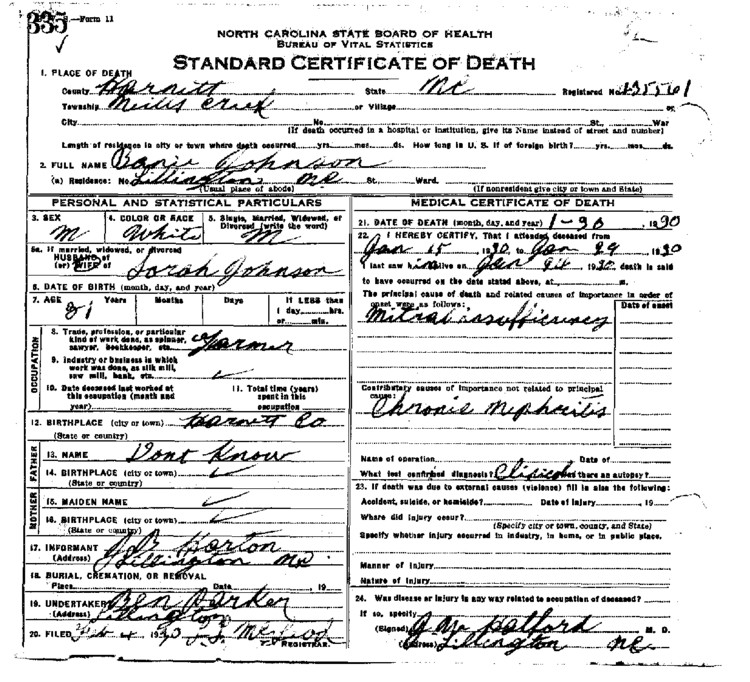 335 —Form 11
NORTH CAROLINA STATE BOARD OF HEALTH
BUREAU OF VITAL STATISTICS
STANDARD CERTIFICATE OF DEATH
1. PLACE OF DEATH
County Harnett State NC Registered No.
Township or Village or
City No. St., War
(If death occurred in a hospital or institution, give its Name instead of street and number)
Length of residence in city or town where death occurred yrs. mos. ds. How long in U. S. if of foreign birth? yrs. mos. ds.
2. FULL NAME Johnson
(a) Residence: No. Lillington NC St. Ward.
(Usual place of abode) (If nonresident give city or town and State)
PERSONAL AND STATISTICAL PARTICULARS
3. SEX 4. COLOR OR RACE 5. Single, Married, Widowed, or
Divorced (write the word)
M White M
5a. If married, widowed, or divorced
HUSBAND of
(or) WIFE of Sarah Johnson
6. DATE OF BIRTH (month, day, and year)
7. AGE Years Months Days If LESS than
81 1 day hrs.
or min.
OCCUPATION
8. Trade, profession, or particular
kind of work done, as spinner,
sawyer, bookkeeper, etc. Farmer
9. Industry or business in which
work was done, as silk mill,
saw mill, bank, etc.
10. Date deceased last worked at 11. Total time (years)
this occupation (month and spent in this
year) occupation
12. BIRTHPLACE (city or town) Harnett Co
(State or country)
FATHER
13. NAME Dont Know
14. BIRTHPLACE (city or town)
(State or country)
MOTHER
15. MAIDEN NAME
16. BIRTHPLACE (city or town)
(State or country)
17. INFORMANT Horton
(Address) Lillington NC
18. BURIAL, CREMATION, OR REMOVAL
Place Date 19
19. UNDERTAKER Ben Barker
(Address) Lillington
20. FILED Feb 4 1930
REGISTRAR.
MEDICAL CERTIFICATE OF DEATH
21. DATE OF DEATH (month, day, and year) 1-30, 1930
22. I HEREBY CERTIFY, That I attended deceased from
Jan 15, 1930, to Jan 29, 1930
I last saw him alive on Jan 24 1930, death is said
to have occurred on the date stated above, at m.
The principal cause of death and related causes of importance in order of
onset were as follows: Date of onset
Mitral insufficiency
Contributory causes of importance not related to principal
cause:
Chronic Nephritis
Name of operation Date of
What test confirmed diagnosis? Clinical Was there an autopsy?
23. If death was due to external causes (violence) fill in also the following:
Accident, suicide, or homicide? Date of injury , 19
Where did injury occur?
(Specify city or town, county, and State)
Specify whether injury occurred in industry, in home, or in public place.
Manner of injury
Nature of injury
24. Was disease or injury in any way related to occupation of deceased?
If so, specify
(Signed) M. D.
(Address) Lillington NC